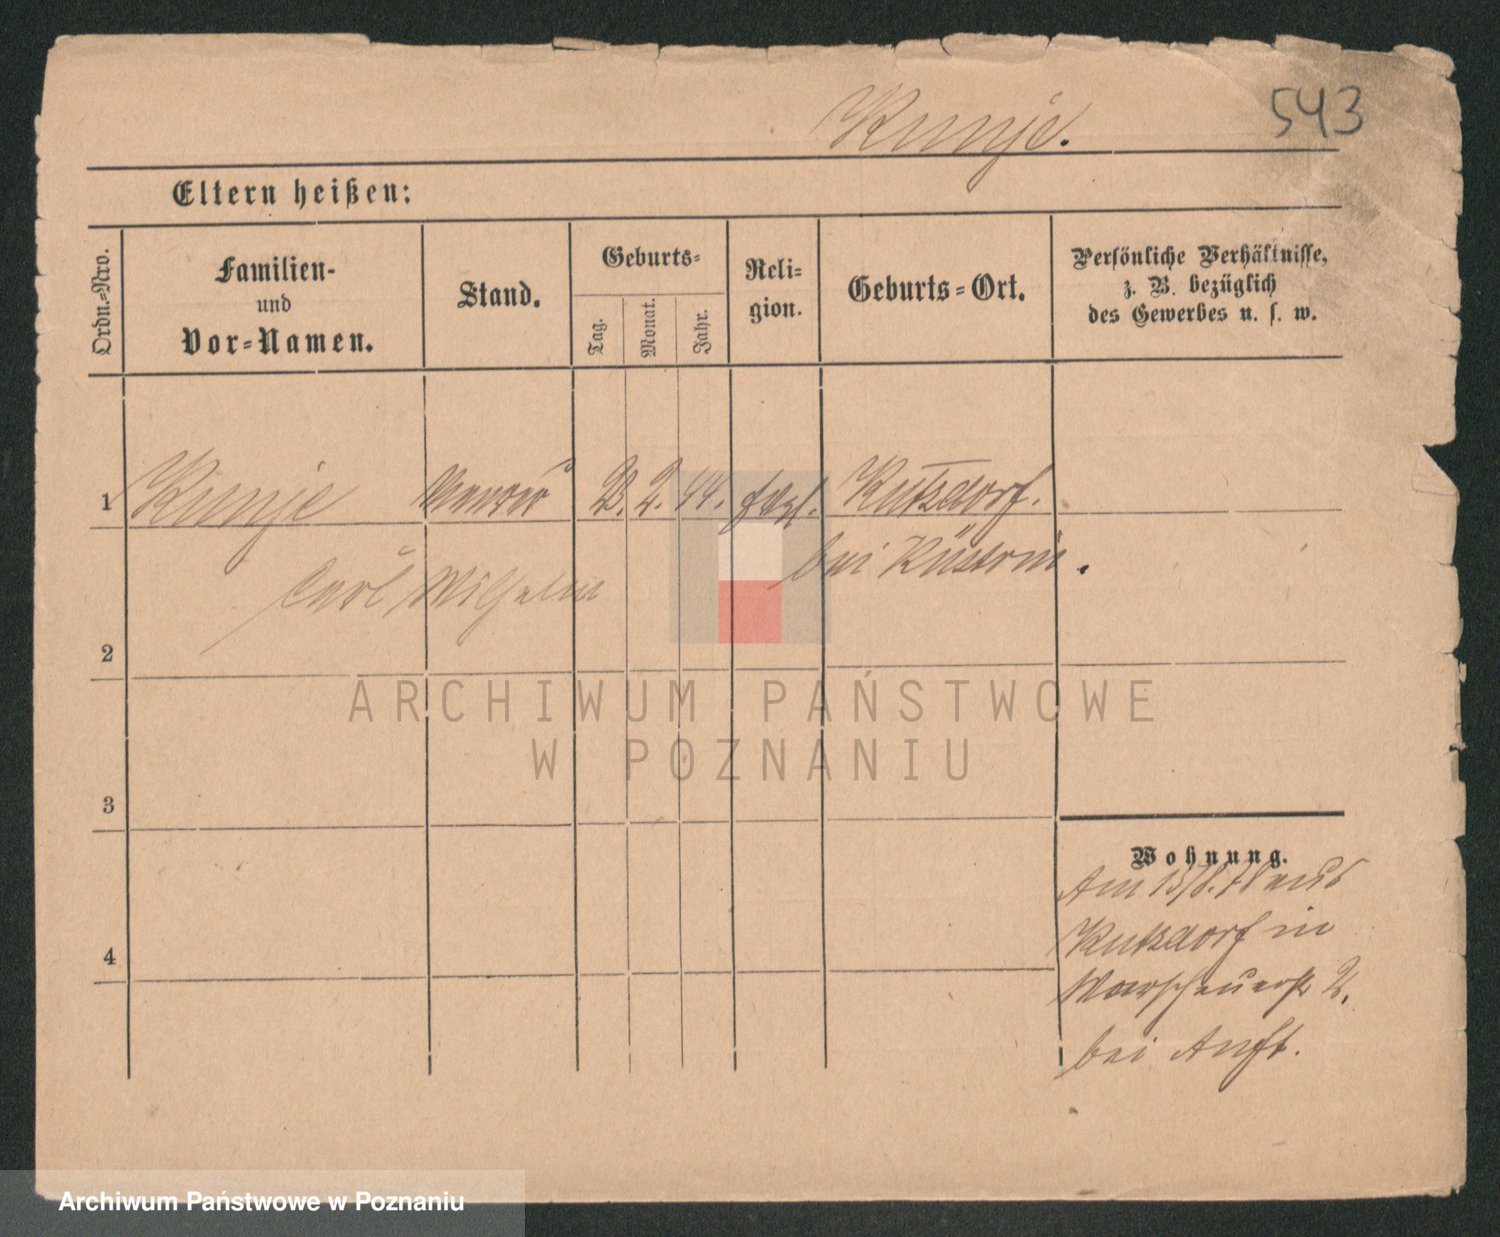 Kunze.
543
Eltern heißen:
Ordn.-Nro.
Familien-
und
Vor-Namen.
Stand.
Geburts-
Tag.
Monat.
Jahr.
Reli-
gion.
Geburts-Ort.
Persönliche Verhältnisse,
z. B. bezüglich
des Gewerbes u. s. w.
1
Kunze
Maurer
2. 44.
Kutzdorf.
Carl Wilhelm
bei Küstrin.
2
3
Wohnung.
Am 15/8. 78 aus
Kutzdorf in
4
2.
bei
ARCHIWUM PAŃSTWOWE
W POZNANIU
Archiwum Państwowe w Poznaniu